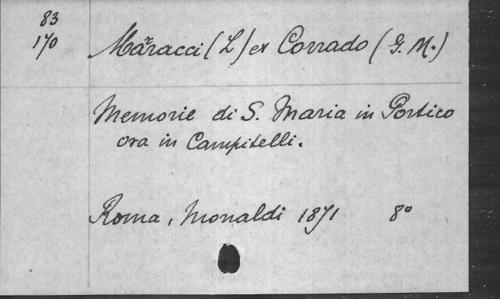 83
170
Marracci (L) ex Corrado (G. M.)
Memorie di S. Maria in Portico
ora in Campitelli.
Roma, Monaldi 1871 8º